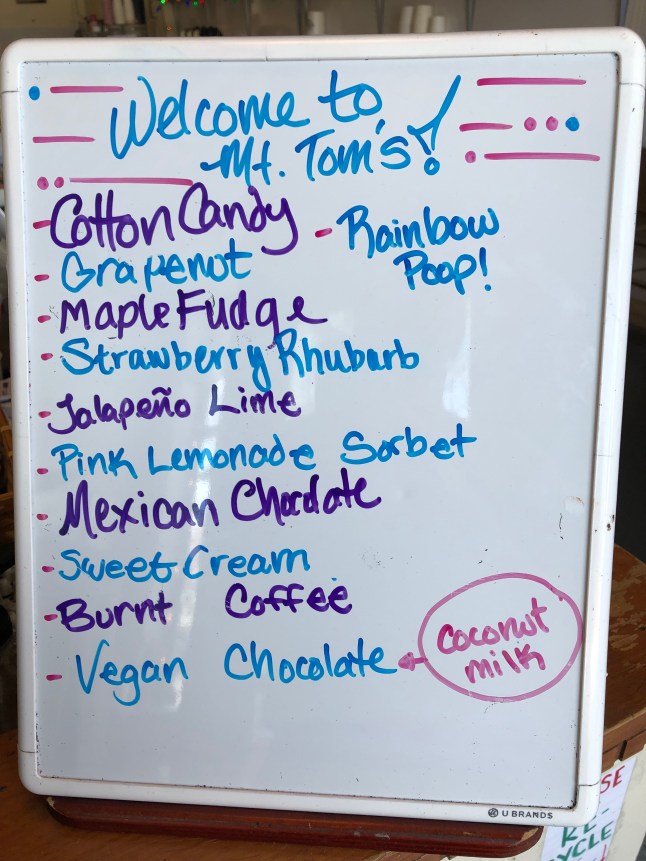 Welcome to
Mt. Tom's!
- Cotton Candy
- Rainbow
Poop!
- Grapenut
- Maple Fudge
- Strawberry Rhubarb
- Jalapeño Lime
- Pink Lemonade Sorbet
- Mexican Chocolate
- Sweet Cream
- Burnt Coffee
- Vegan Chocolate
coconut
milk
U BRANDS
SE
RE-
YCLE